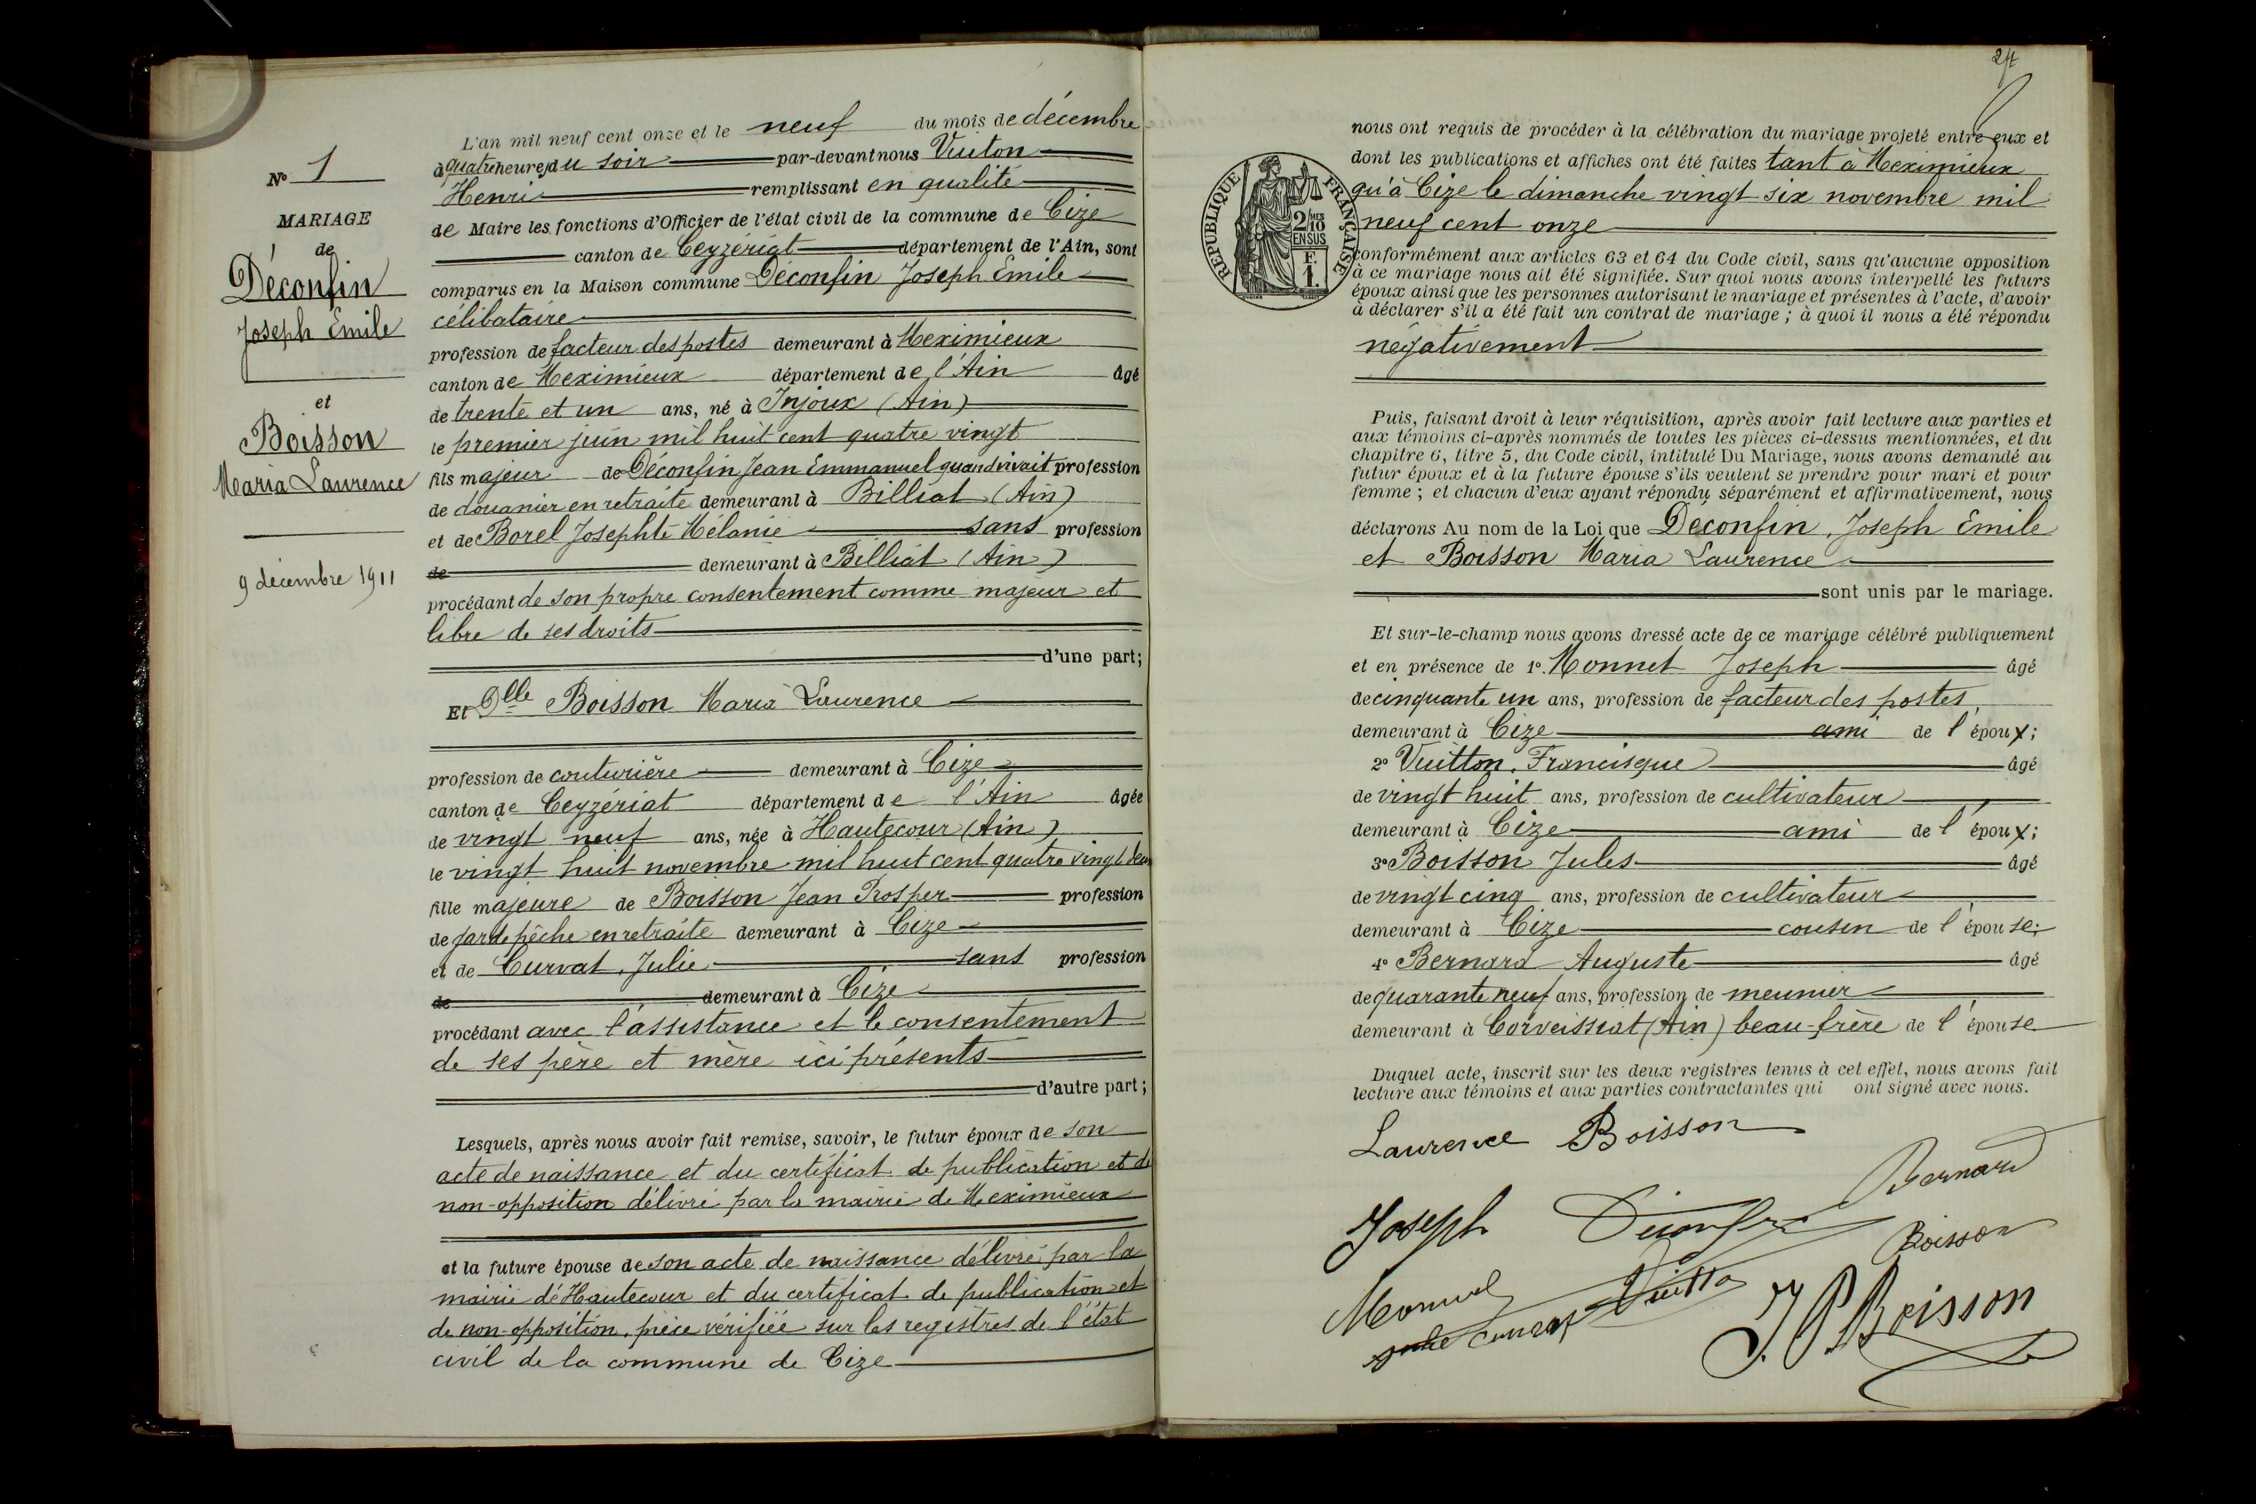 L'an mil neuf cent onze et le neuf du mois de décembre
à quatre heures du soir par-devant nous Vuiton
Henri remplissant en qualité
de Maire les fonctions d'Officier de l'état civil de la commune de Cize
canton de Ceyzériat département de l'Ain, sont
comparus en la Maison commune Déconfin Joseph Emile
célibataire
profession de facteur des postes demeurant à Meximieux
canton de Meximieux département de l'Ain âgé
de trente et un ans, né à Injoux (Ain)
le premier juin mil huit cent quatre vingt
fils majeur de Déconfin Jean Emmanuel quand vivait profession
de douanier en retraite demeurant à Billiat (Ain)
et de Borel Josephte Mélanie sans profession
de demeurant à Billiat (Ain)
procédant de son propre consentement comme majeur et
libre de ses droits
d'une part;
Et Dlle Boisson Maria Laurence
profession de couturière demeurant à Cize
canton de Ceyzériat département de l'Ain âgée
de vingt neuf ans, née à Hautecour (Ain)
le vingt huit novembre mil huit cent quatre vingt deux
fille majeure de Boisson Jean Prosper profession
de garde pêche en retraite demeurant à Cize
et de Curvat, Julie sans profession
de demeurant à Cize
procédant avec l'assistance et le consentement
de ses père et mère ici présents
d'autre part;
Lesquels, après nous avoir fait remise, savoir, le futur époux de son
acte de naissance et du certificat de publication et de
non-opposition délivré par la mairie de Meximieux
et la future épouse de son acte de naissance délivré par la
mairie de Hautecour et du certificat de publication et
de non-opposition, pièce vérifiée sur les registres de l'état
civil de la commune de Cize
No 1
MARIAGE
de
Déconfin
Joseph Emile
et
Boisson
Maria Laurence
9 décembre 1911
nous ont requis de procéder à la célébration du mariage projeté entre eux et
dont les publications et affiches ont été faites tant à Meximieux
qu'à Cize le dimanche vingt six novembre mil
neuf cent onze
conformément aux articles 63 et 64 du Code civil, sans qu'aucune opposition
à ce mariage nous ait été signifiée. Sur quoi nous avons interpellé les futurs
époux ainsi que les personnes autorisant le mariage et présentes à l'acte, d'avoir
à déclarer s'il a été fait un contrat de mariage; à quoi il nous a été répondu
négativement
Puis, faisant droit à leur réquisition, après avoir fait lecture aux parties et
aux témoins ci-après nommés de toutes les pièces ci-dessus mentionnées, et du
chapitre 6, titre 5, du Code civil, intitulé Du Mariage, nous avons demandé au
futur époux et à la future épouse s'ils veulent se prendre pour mari et pour
femme; et chacun d'eux ayant répondu séparément et affirmativement, nous
déclarons Au nom de la Loi que Déconfin, Joseph Emile
et Boisson Maria Laurence
sont unis par le mariage.
Et sur-le-champ nous avons dressé acte de ce mariage célébré publiquement
et en présence de 1o. Monnet Joseph âgé
de cinquante un ans, profession de facteur des postes,
demeurant à Cize ami de l'époux;
2o Vuitton, Francisque âgé
de vingt huit ans, profession de cultivateur
demeurant à Cize ami de l'époux;
3o Boisson Jules âgé
de vingt cinq ans, profession de cultivateur
demeurant à Cize cousin de l'épouse;
4o Bernard Auguste âgé
de quarante neuf ans, profession de meunier
demeurant à Corveissiat (Ain) beau-frère de l'épouse
Duquel acte, inscrit sur les deux registres tenus à cet effet, nous avons fait
lecture aux témoins et aux parties contractantes qui ont signé avec nous.
Laurence Boisson
Bernard
Joseph Déconfin
Boisson
J P Boisson
RÉPUBLIQUE FRANÇAISE
2/10
EN SUS
F.
1